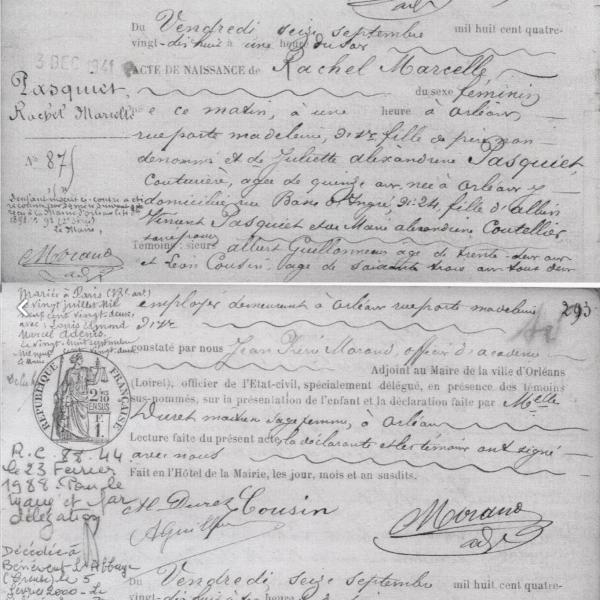 Du Vendredi seize septembre mil huit cent quatre-
vingt-dix huit à une heure du soir
3 DEC 1941
ACTE DE NAISSANCE de Rachel Marcelle,
du sexe féminin
Pasquiet,
Rachel Marcelle
née ce matin, à une heure à Orléans
rue porte madeleine, dix, fille de père non
N° 875
dénommé et de Juliette alexandrine Pasquiet
Couturière, agée de quinze ans née à Orléans y
domiciliée, rue Basse d'Ingré, 24, fille d'albin
Vincent Pasquiet et de Marie alexandrine Coutellier
Témoins: sieurs albert Guillonneau agé de trente-deux ans
et Léon Cousin, agé de soixante trois ans tous deux
le Maire,
Morand
adj
Mariée à Paris
le vingt juillet mil
neuf cent vingt-deux,
avec Louis Edmond
Marcel Adenis
employés demeurant à Orléans rue porte madeleine
293
dix
constaté par nous Jean Pierre Morand, officier d'académie
Adjoint au Maire de la ville d'Orléans
(Loiret), officier de l'Etat-civil, spécialement délégué, en présence des témoins
sus-nommés, sur la présentation de l'enfant et la déclaration faite par Melle
Duret maitresse sage femme, à Orléans
Lecture faite du présent acte, la déclarante et les témoins ont signé
avec nous
Fait en l'Hôtel de la Mairie, les jour, mois et an susdits.
RÉPUBLIQUE FRANÇAISE
2/10 EN SUS
R.C. 88.44
le 23 Février
1988. Pour le
Maire et par
délégation
M. Duret Cousin
AGuillon
Morand
adjt
Décédée à
Bénévent L'Abbaye
(Creuse) le 5
Janvier 2000 - Le
Du Vendredi seize septembre mil huit cent quatre-
vingt-dix huit à